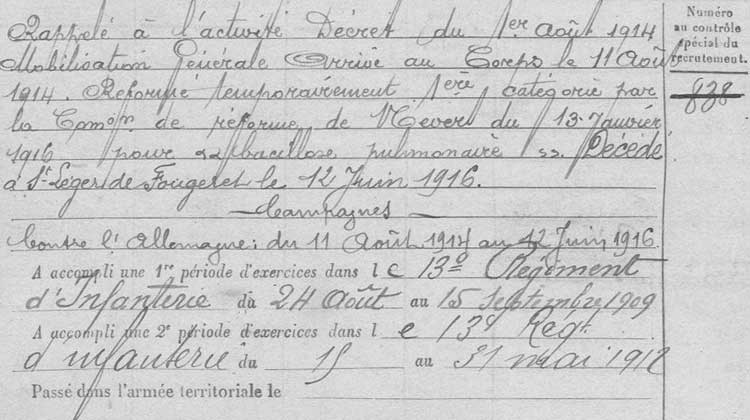 Rappelé à l'activité Décret du 1er août 1914
Mobilisation Générale Arrivé au Corps le 11 Août
1914. Réformé temporairement 1ère catégorie par
la Comon de réforme de Nevers du 13 Janvier
1916 pour "bacillose pulmonaire". Décédé
à St Léger de Fougeret le 12 Juin 1916.
Campagnes
Contre l'Allemagne: du 11 Août 1914 au 12 Juin 1916.
A accompli une 1re période d'exercices dans le 13e Régiment
d'Infanterie du 24 Août au 15 septembre 1909
A accompli une 2e période d'exercices dans le 13e Régt
d'infanterie du 15 au 31 mai 1912
Passé dans l'armée territoriale le
Numéro
au contrôle
spécial du
recrutement.
838